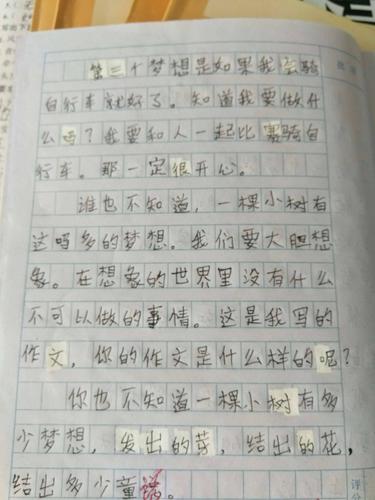 第三个梦想是如果我会骑
自行车就好了。知道我要做什
么吗？我要和人一起比赛骑自
行车。那一定很开心。
谁也不知道，一棵小树有
这吗多的梦想。我们要大胆想
象。在想象的世界里没有什么
不可以做的事情。这是我写的
作文，你的作文是什么样的呢？
你也不知道一棵小树有多
少梦想，发出的芽，结出的花，
结出多少童话。
评分